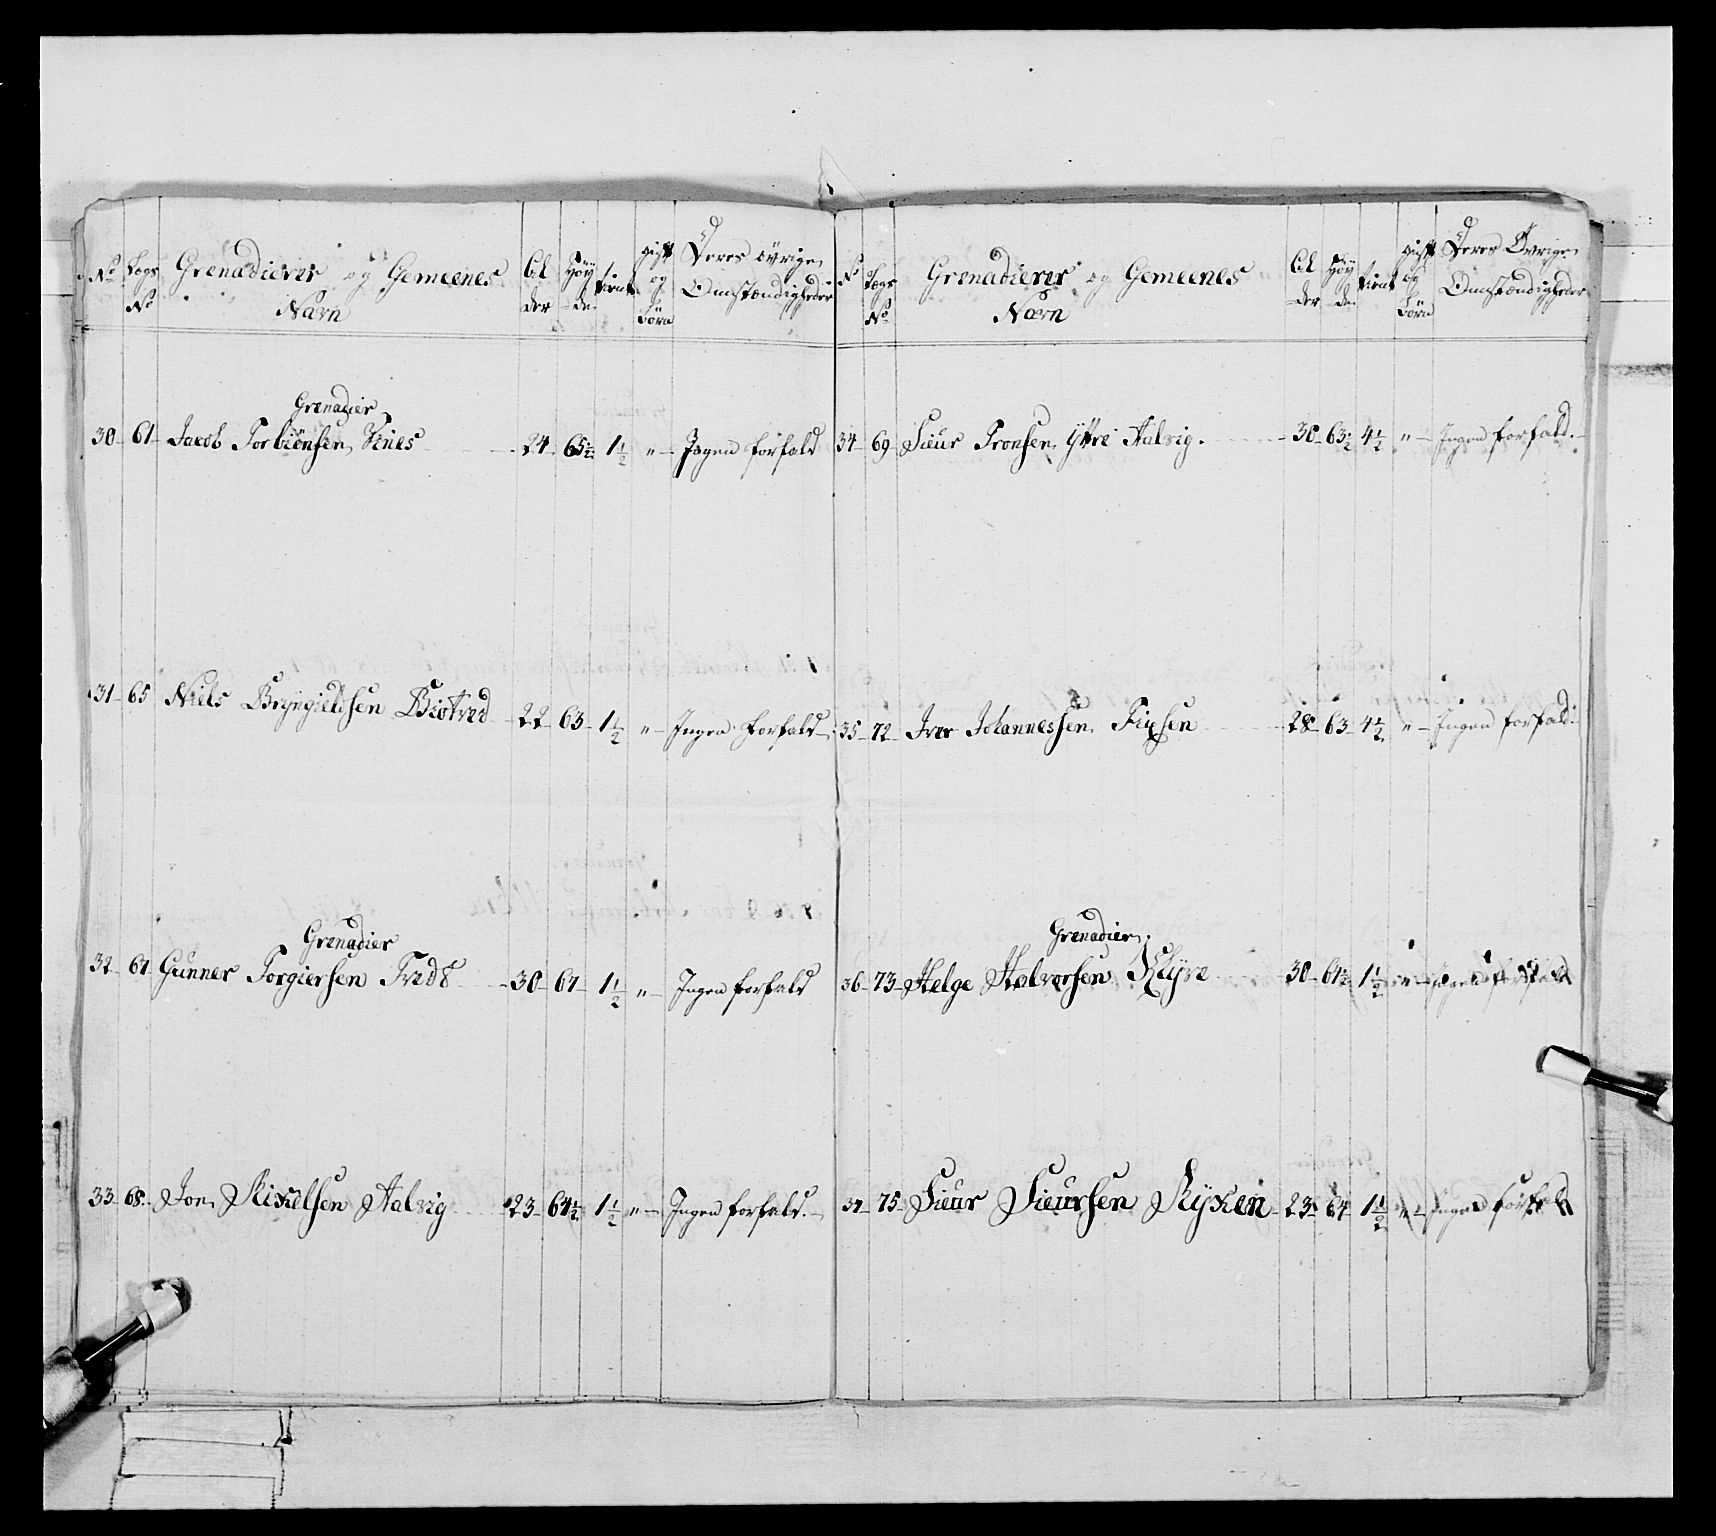 No Lægs No Grenadierer og Gemeenes Navn Al der Høy de tient gift og börn Deres övrige Omstændigheder
Grenadier
30 61 Jacob Torbiönsen Vines 24 65½ 1½ " Ingen forfald
31 65 Niels Bryngieldsen Biotved 22 63 1½ " Ingen forfald
Grenadier
32 67 Gunner Torgiersen Tved 30 67 1½ " Ingen forfald
33 68 Jon Mikelsen Aalvig 23 64½ 1½ " Ingen forfald.
No Lægs No Grenadierer og Gemeenes Navn Al der Høy de tient gift og Börn Deres Övrige Omstændigheder
34 69 Siur Tronsen Yttre Aalvig. 30 63½ 4½ " Ingen forfald.
35 72 Iver Johannessen Fixsen 28 63 4½ " Ingen forfald.
Grenadier
36 73 Helge Halvorsen Klyve 30 61½ 1½ " Ingen forfald
37 75 Siur Siursen Rykken 23 64 1½ " Ingen forfald